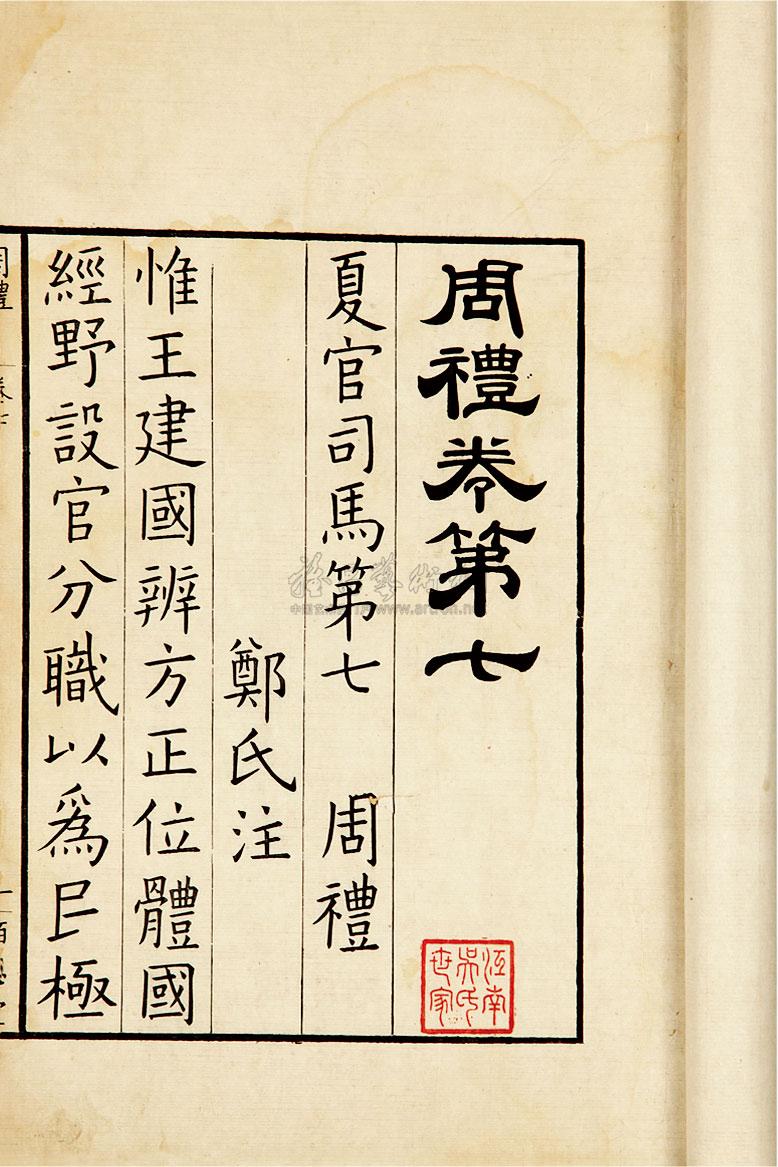 周禮卷第七
夏官司馬第七　周禮
鄭氏注
惟王建國辨方正位體國
經野設官分職以爲民極
江南吳氏世家
周禮 卷七
www.artron.net